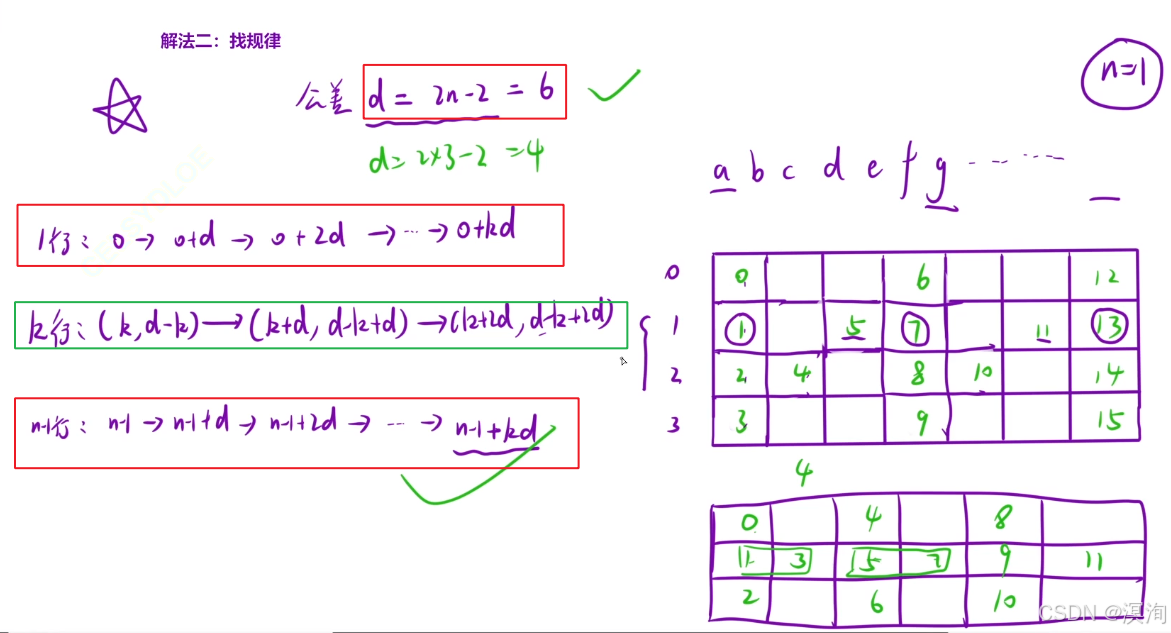 解法二：找规律
公差 d = 2n-2 = 6
n=1
d= 2×3-2 =4
a b c d e f g ... ...
1行： 0 → 0+d → 0+2d → ... → 0+kd
k行：(k,d-k) → (k+d, d-k+d) → (k+2d, d-k+2d)
n-1行： n-1 → n-1+d → n-1+2d → ... → n-1+kd
0 0 6 12
1 1 5 7 11 13
2 2 4 8 10 14
3 3 9 15
4
0 4 8
1 3 5 7 9 11
2 6 10
CSDN @溟洵